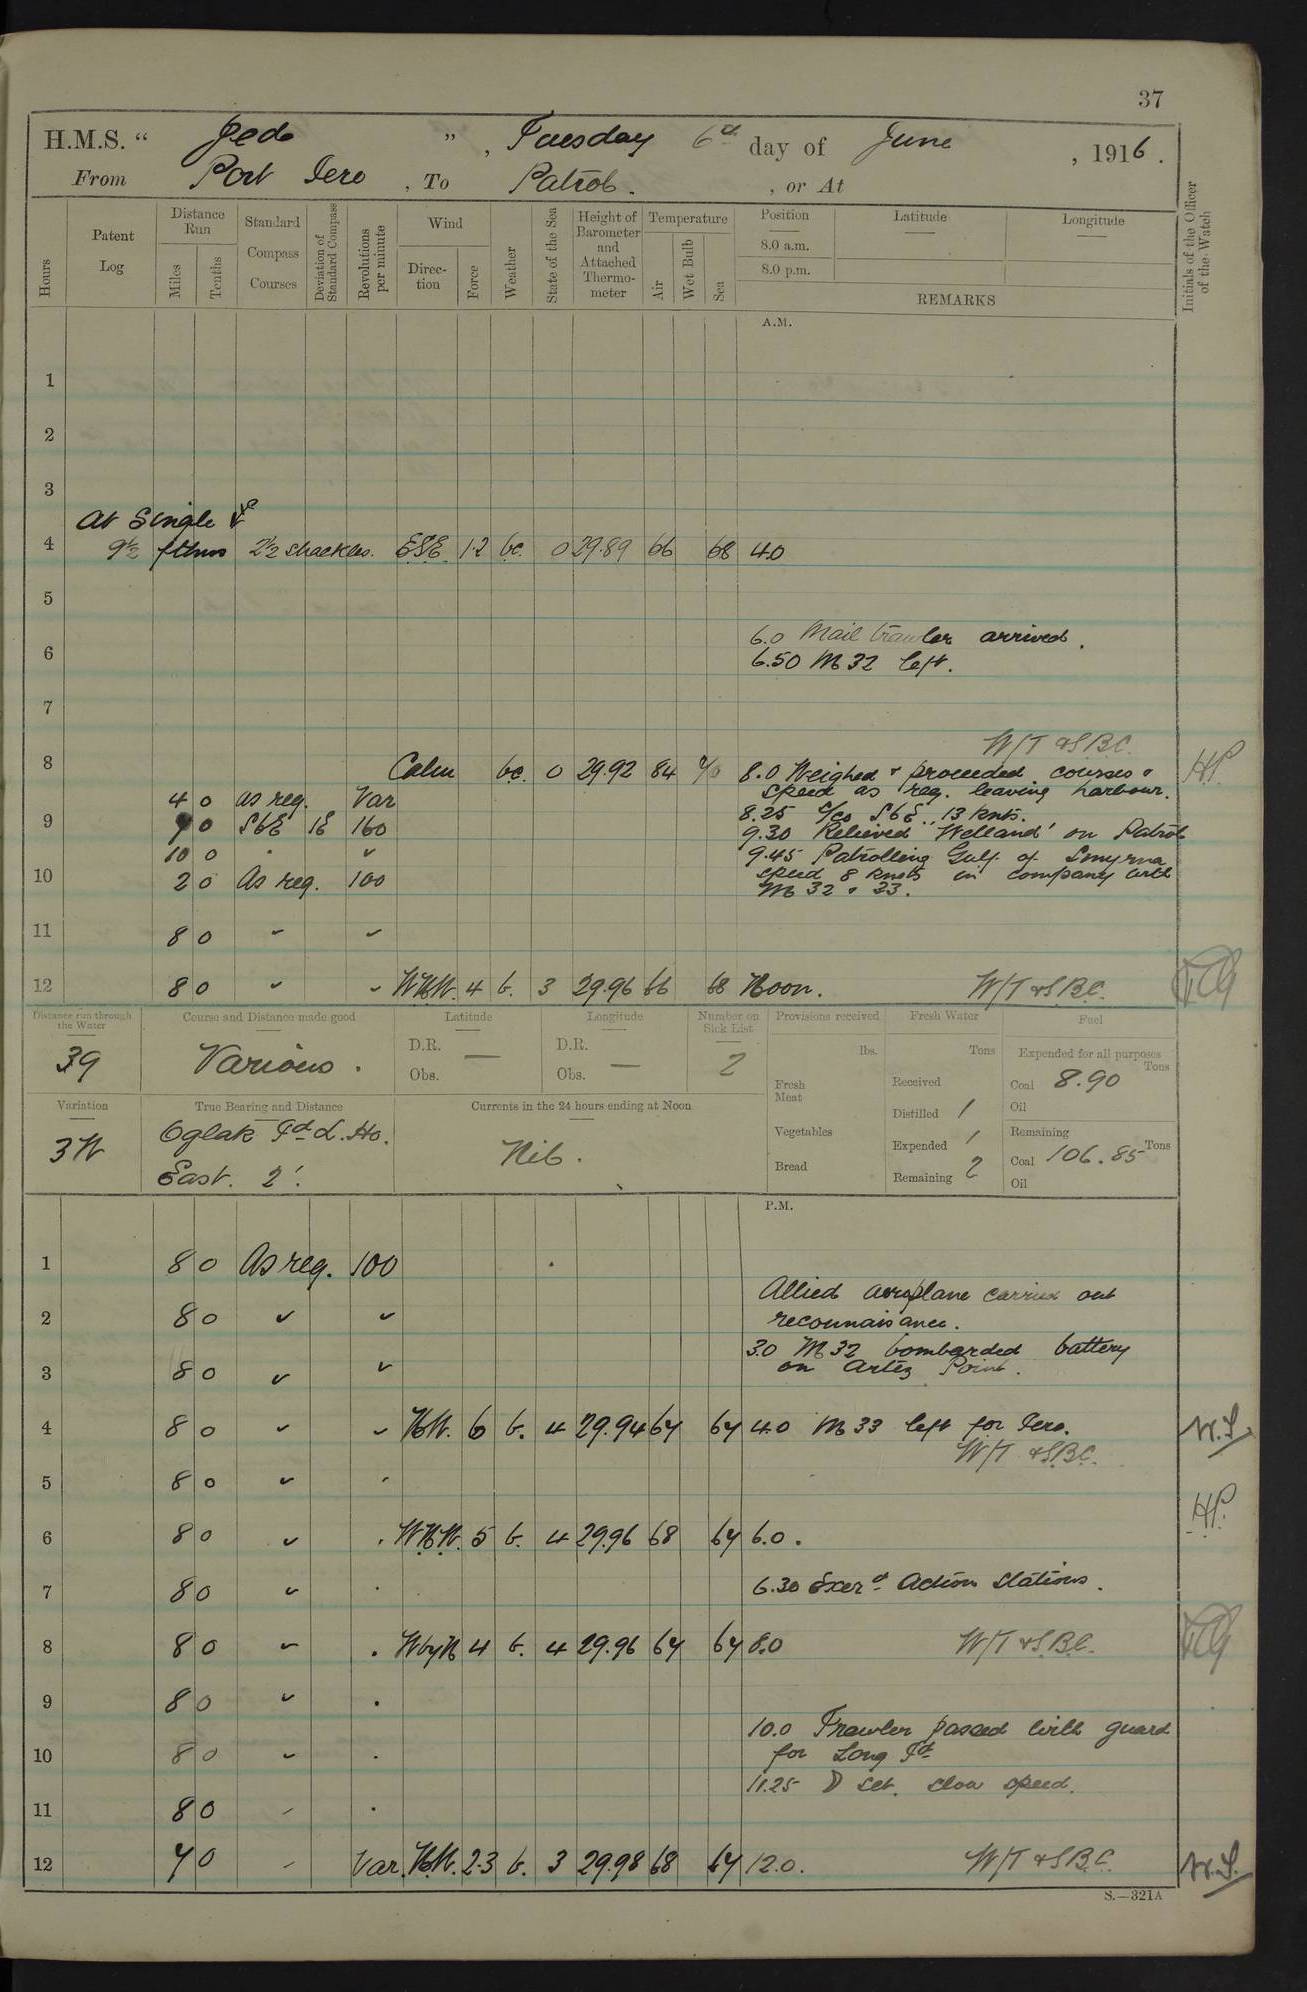 37
H.M.S. “ Jed ”, Tuesday 6th day of June, 1916.
From Port Iero, To Patrol., or At
Hours
Patent Log
Distance Run
Miles
Tenths
Standard Compass Courses
Deviation of Standard Compass
Revolutions per minute
Wind
Direction
Force
Weather
State of the Sea
Height of Barometer and Attached Thermometer
Temperature
Air
Wet Bulb
Sea
Position
8.0 a.m.
8.0 p.m.
Latitude
Longitude
REMARKS
Initials of the Officer of the Watch
A.M.
1
2
3
At Single
4 9½ fthms 2½ shackles. ESE 1.2 bc. 0 29.89 66 68 4.0
5
6.0 Mail trawler arrived.
6
6.50 M 32 left.
7
W/T & S.B.C.
8 Calm bc. 0 29.92 84 8.0 Weighed & proceeded courses & H.P.
speed as req. leaving harbour.
4 0 as req. Var
8.25 c/co SbE., 13 knts.
9 0 SbE 1E 160
9.30 Relieved 'Welland' on Patrol
10 0 " "
9.45 Patrolling Gulf of Smyrna
10 2 0 As req. 100 speed 8 knots in company with
M 32 & 33.
11 8 0 " "
12 8 0 " " WNW. 4 b. 3 29.96 66 68 Noon. W/T & S.B.C.
Distance run through the Water
39
Course and Distance made good
Various.
Latitude
D.R. —
Obs.
Longitude
D.R.
Obs. —
Number on Sick List
2
Provisions received
lbs.
Fresh Meat
Vegetables
Bread
Fresh Water
Tons
Received
Distilled 1
Expended 1
Remaining 2
Fuel
Expended for all purposes
Tons
Coal 8.90
Oil
Remaining
Coal 106.85 Tons
Oil
Variation
3 W
True Bearing and Distance
Oglak Id L. Ho.
East. 2'.
Currents in the 24 hours ending at Noon
Nil.
P.M.
1 8 0 As req. 100
Allied aeroplane carried out
2 8 0 " "
reconnaisance.
3.0 M 32 bombarded battery
3 8 0 " " on Artez Point.
4 8 0 " " NW. 6 b. 4 29.94 67 67 4.0 M 33 left for Iero. W.S.
W/T & S.B.C.
5 8 0 " "
H.P.
6 8 0 " " WNW. 5 b. 4 29.96 68 67 6.0.
7 8 0 " " 6.30 Exerd Action Stations.
8 8 0 " " WbyN 4 b. 4 29.96 67 67 8.0 W/T & S.B.C.
9 8 0 " "
10.0 Trawler passed with guard
10 8 0 " " for Long Id
11.25 ☽ set. slow speed.
11 8 0 " "
12 7 0 " Var. NW. 2.3 b. 3 29.98 68 67 12.0. W/T & S.B.C. W.S.
S.—321A